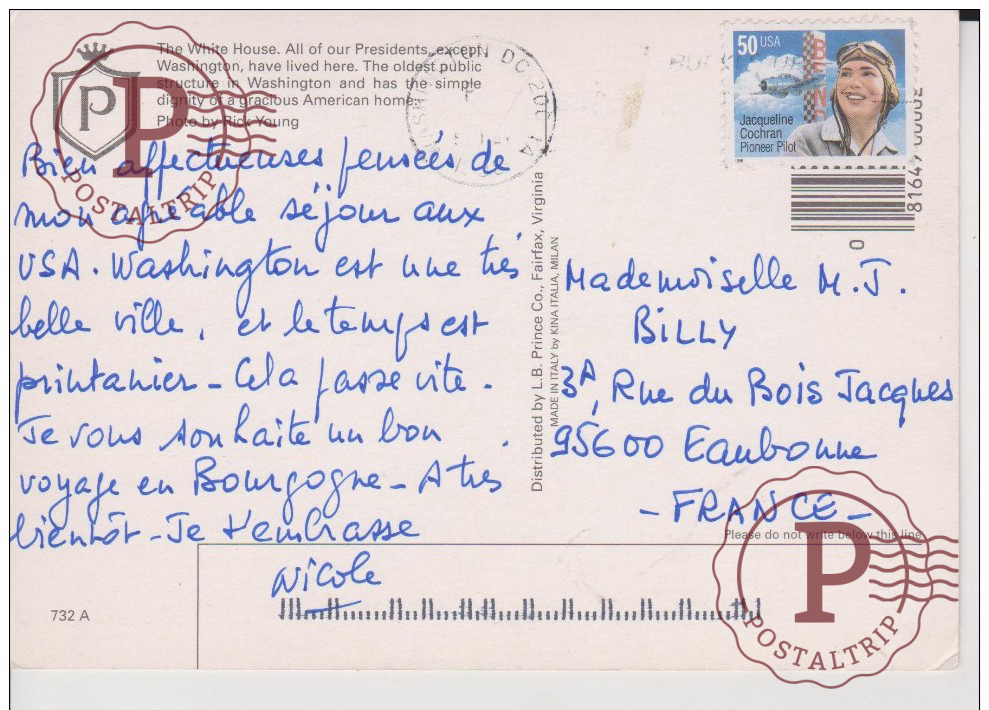 The White House. All of our Presidents, except
Washington, have lived here. The oldest public
structure in Washington and has the simple
dignity of a gracious American home.
Photo by Rick Young
P
P
POSTALTRIP
Bien affectueuses pensées de
mon agréable séjour aux
USA. Washington est une très
belle ville, et le temps est
printanier - Cela passe vite.
Je vous souhaite un bon
voyage en Bourgogne - A très
bientôt - Je t'embrasse
Nicole
732 A
Distributed by L.B. Prince Co., Fairfax, Virginia
MADE IN ITALY by KINA ITALIA, MILAN
DC 200
50 USA
Jacqueline
Cochran
Pioneer Pilot
81649 00002
0
Mademoiselle M.J.
BILLY
3A, Rue du Bois Jacques
95600 Eaubonne
- FRANCE -
Please do not write below this line
P
POSTALTRIP